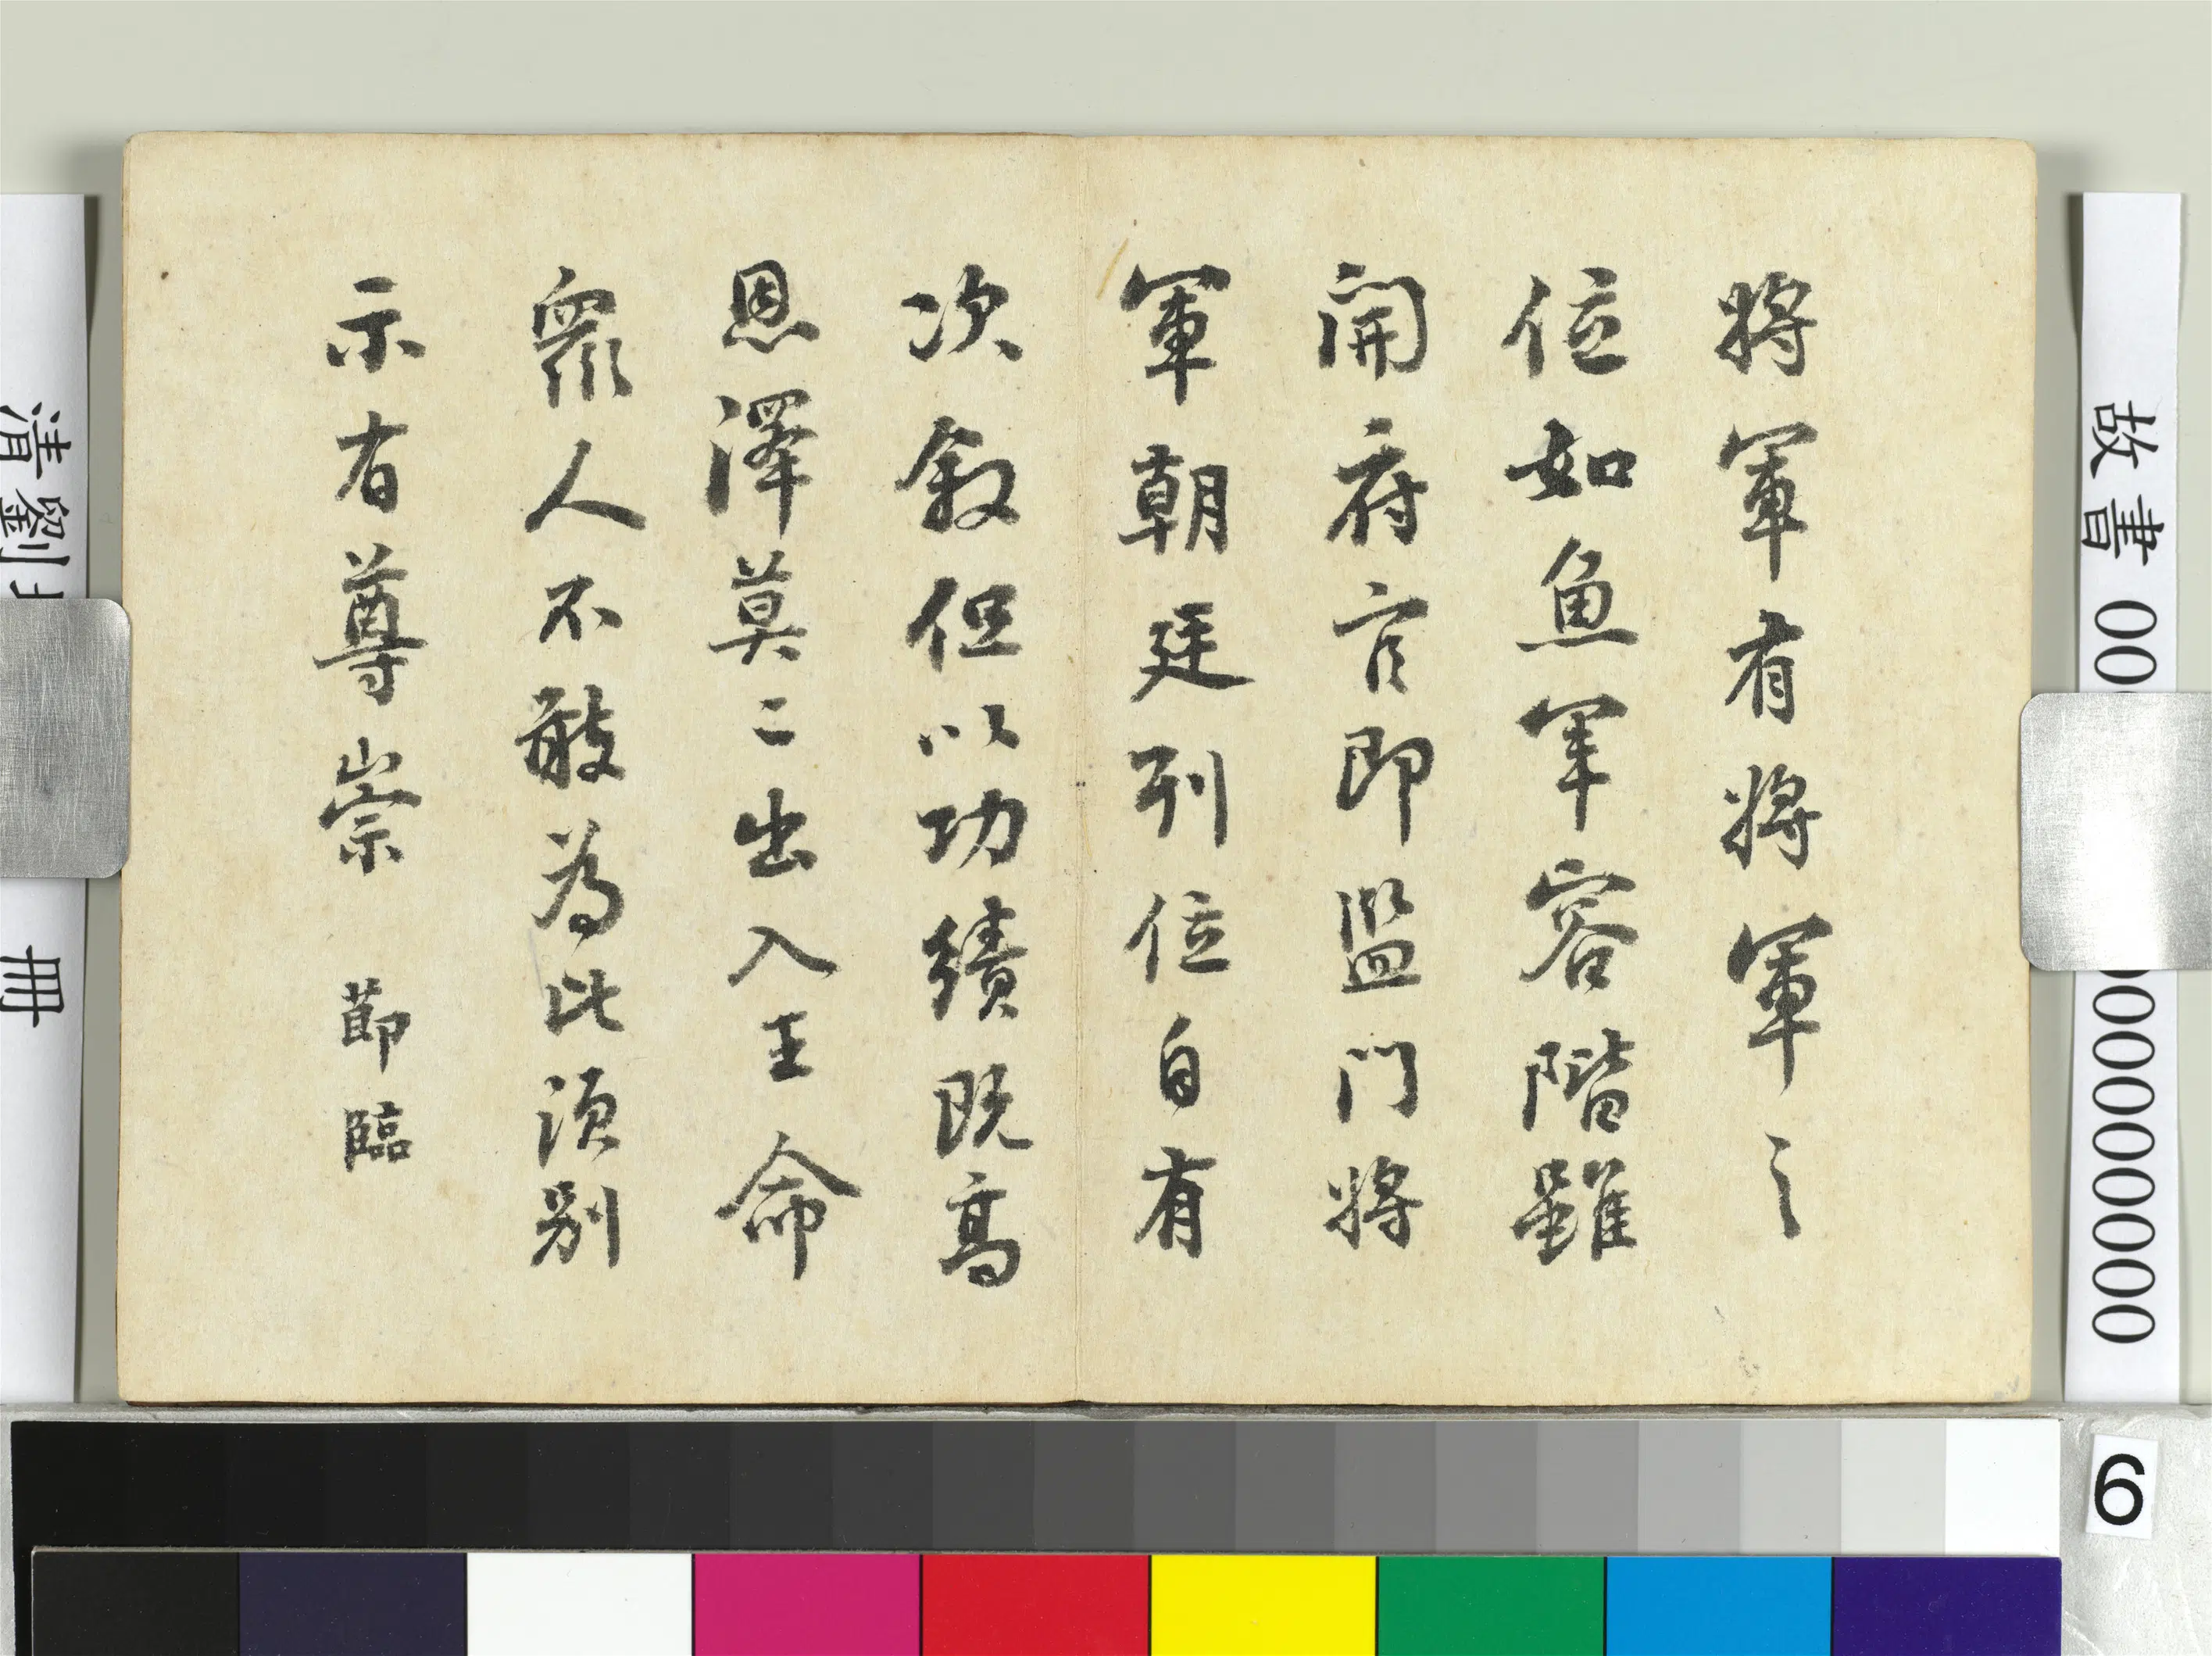 故書00
000000000
將軍有將軍之
位如魚軍容階雖
開府官即監門將
軍朝廷列位自有
次敘但以功績既高
恩澤莫二出入王命
眾人不敢為此須別
示有尊崇 節臨
清劉
冊
6